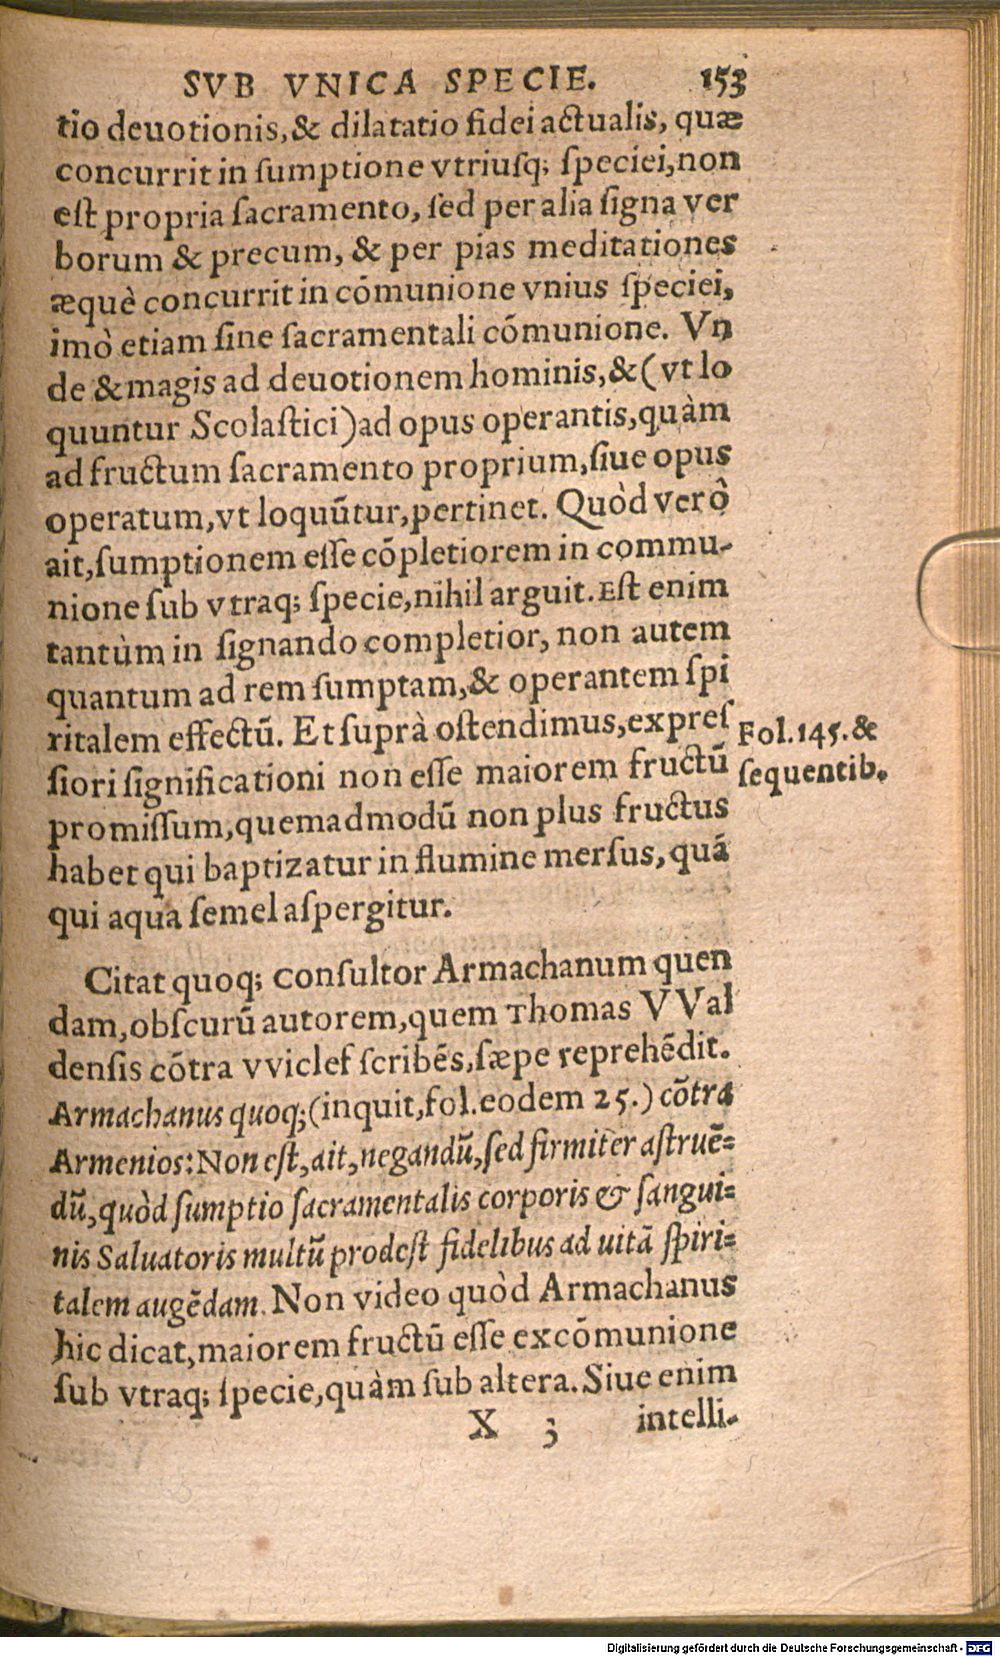 SVB VNICA SPECIE. 153
tio deuotionis,& dilatatio fidei actualis, quæ
concurrit in ſumptione vtriuſq; ſpeciei,non
eſt propria ſacramento, ſed per alia ſigna ver
borum & precum, & per pias meditationes
æquè concurrit in cōmunione vnius ſpeciei,
imò etiam ſine ſacramentali cōmunione. Vn
de & magis ad deuotionem hominis,&( vt lo
quuntur Scolaſtici)ad opus operantis,quàm
ad fructum ſacramento proprium,ſiue opus
operatum,vt loquūtur,pertinet. Quòd verò
ait,ſumptionem eſſe cōpletiorem in commu-
nione ſub vtraq; ſpecie,nihil arguit.Eſt enim
tantùm in ſignando completior, non autem
quantum ad rem ſumptam,& operantem ſpi
ritalem effectū. Et ſuprà oſtendimus,expreſ
Fol.145.&
ſiori ſignificationi non eſſe maiorem fructū
ſequentib.
promiſſum,quemadmodū non plus fructus
habet qui baptizatur in flumine merſus, quā
qui aqua ſemel aſpergitur.
Citat quoq; Conſultor Armachanum quen
dam,obſcurū autorem,quem Thomas VVal
denſis cōtra vviclef ſcribēs,ſæpe reprehēdit.
Armachanus quoq;(inquit,fol.eodem 25.) cōtra
Armenios:Non eſt,ait,negandū,ſed firmiter aſtruē=
dū,quòd ſumptio ſacramentalis corporis & ſangui=
nis Saluatoris multū prodeſt fidelibus ad uitā ſpiri=
talem augēdam. Non video quòd Armachanus
hic dicat,maiorem fructū eſſe ex cōmunione
ſub vtraq; ſpecie,quàm ſub altera. Siue enim
X 3 intelli-
Digitalisierung gefördert durch die Deutsche Forschungsgemeinschaft - DFG